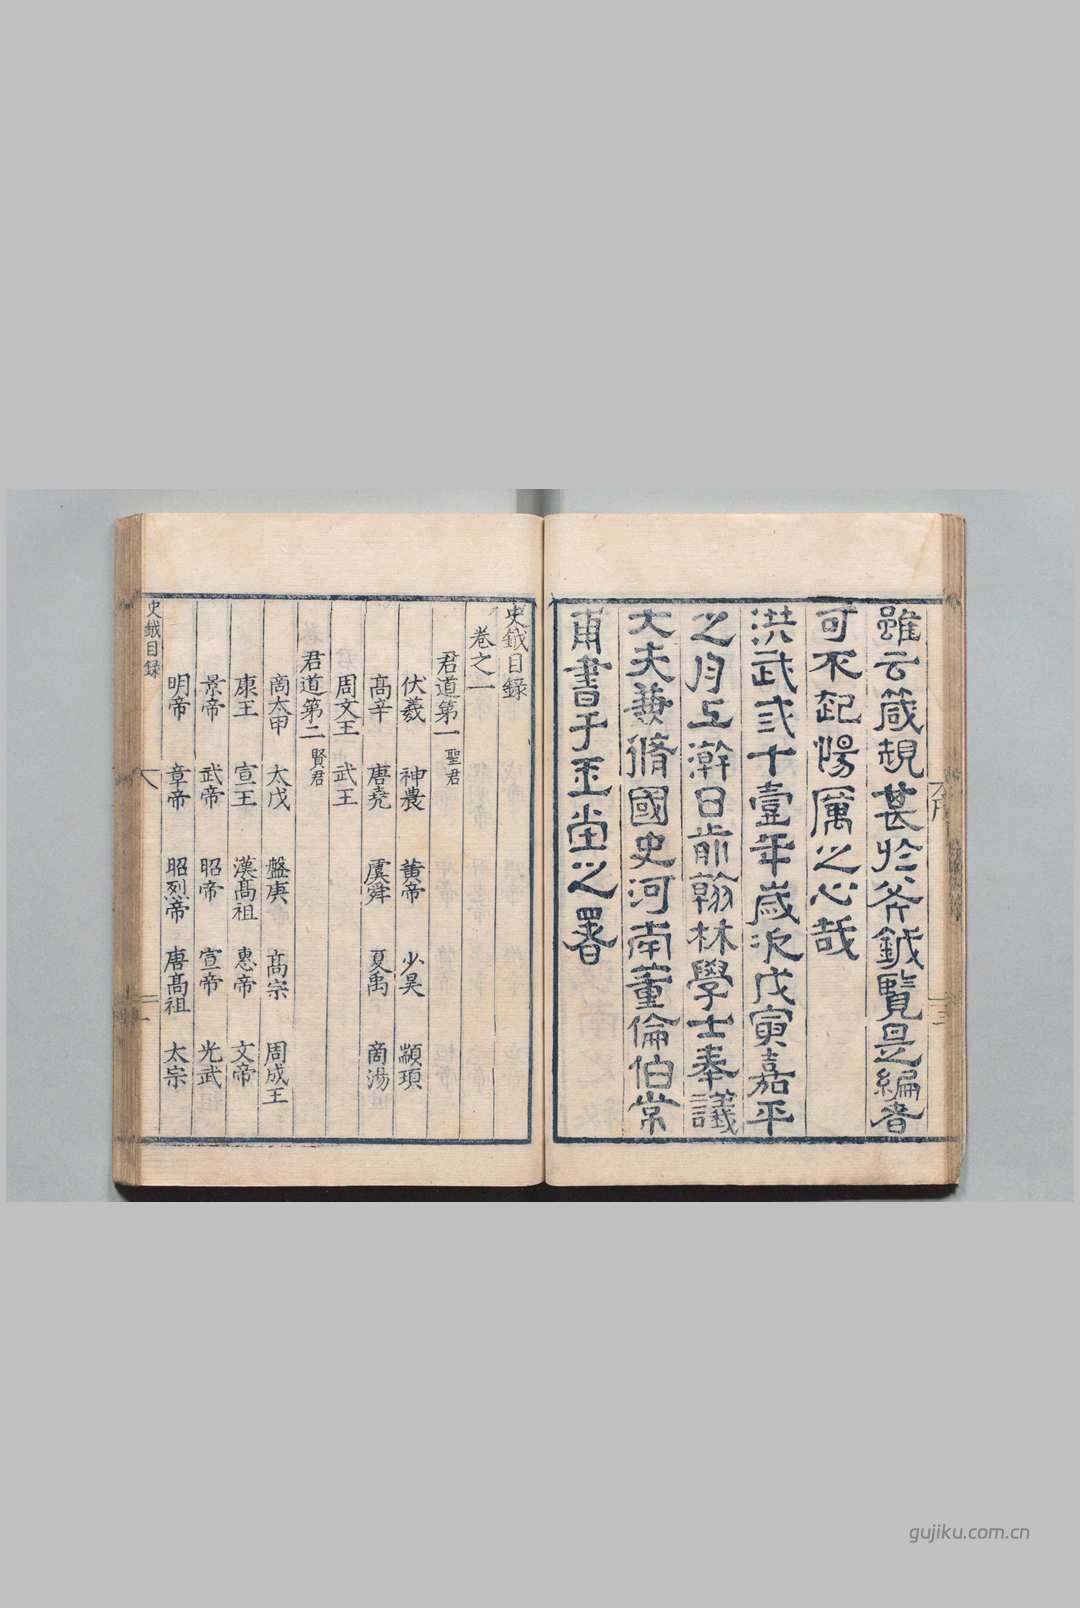 雖云箴規甚於斧鉞覽是編者
可不起惕厲之心哉
洪武弍十壹年歲次戊寅嘉平
之月上澣日前翰林學士奉議
大夫兼脩國史河南董倫伯常
甫書于玉堂之署
史鉞目録
卷之一
君道第一 聖君
伏羲 神農 黄帝 少昊 顓頊
高辛 唐堯 虞舜 夏禹 商湯
周文王 武王
君道第二 賢君
商太甲 太戊 盤庚 高宗 周成王
康王 宣王 漢高祖 惠帝 文帝
景帝 武帝 昭帝 宣帝 光武
明帝 章帝 昭烈帝 唐高祖 太宗
史鉞目録
gujiku.com.cn